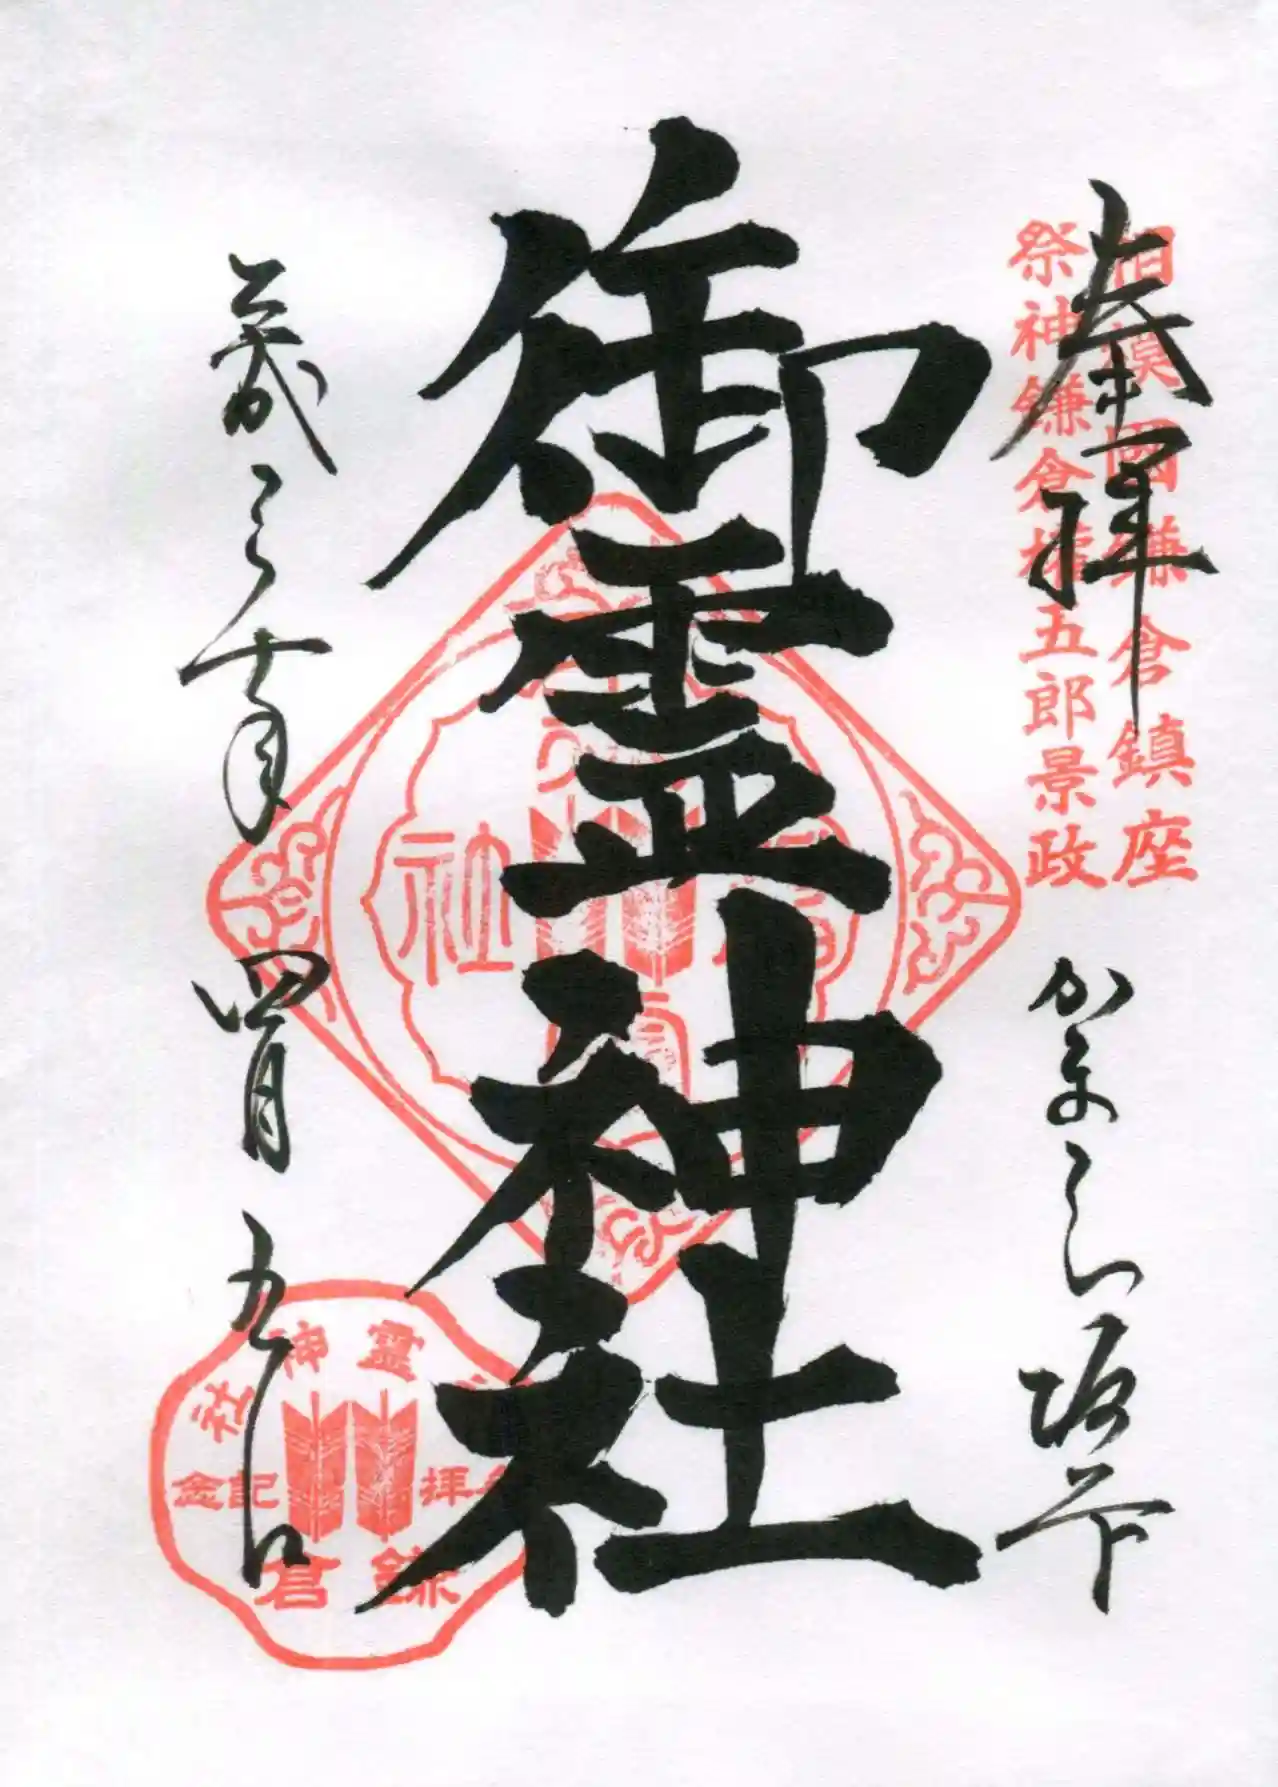 奉拝
相模國鎌倉鎮座
祭神鎌倉權五郎景政
かまくら 坂ノ下
御霊神社
平成二十年 四月 五日
霊神社
拝記念
鎌倉